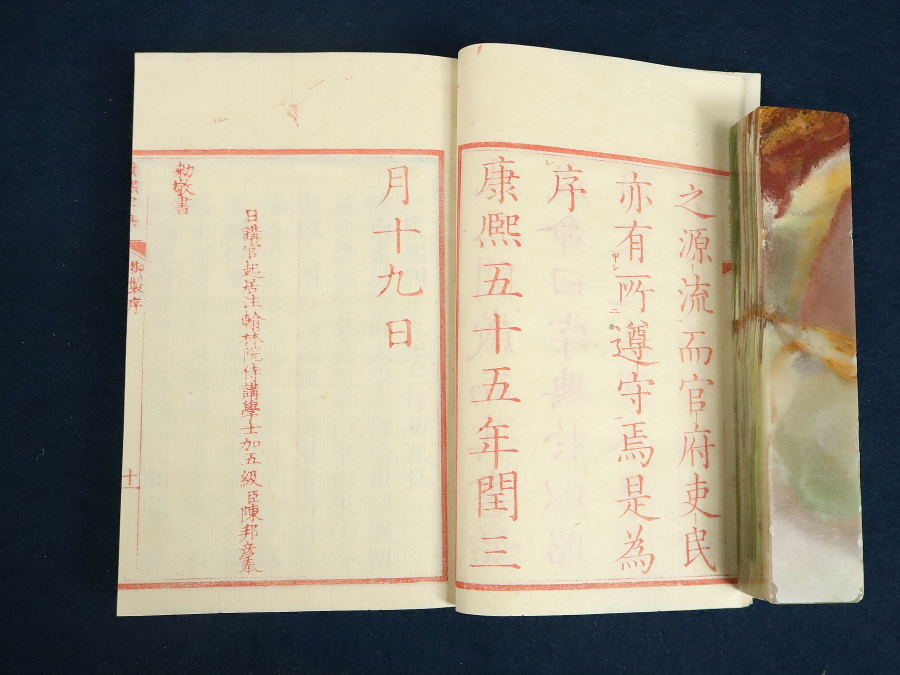 之源流而官府吏民
亦有所遵守焉是為
序
康熙五十五年閏三
月十九日
日講官起居注翰林院侍講學士加五級臣陳邦彥奉
勅敬書
御製序
十